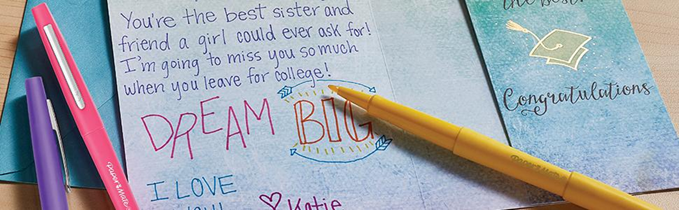 You're the best sister and
friend a girl could ever ask for!
I'm going to miss you so much
when you leave for college!
DREAM BIG
I LOVE
Katie
the best!
Congratulations
Paper Mate